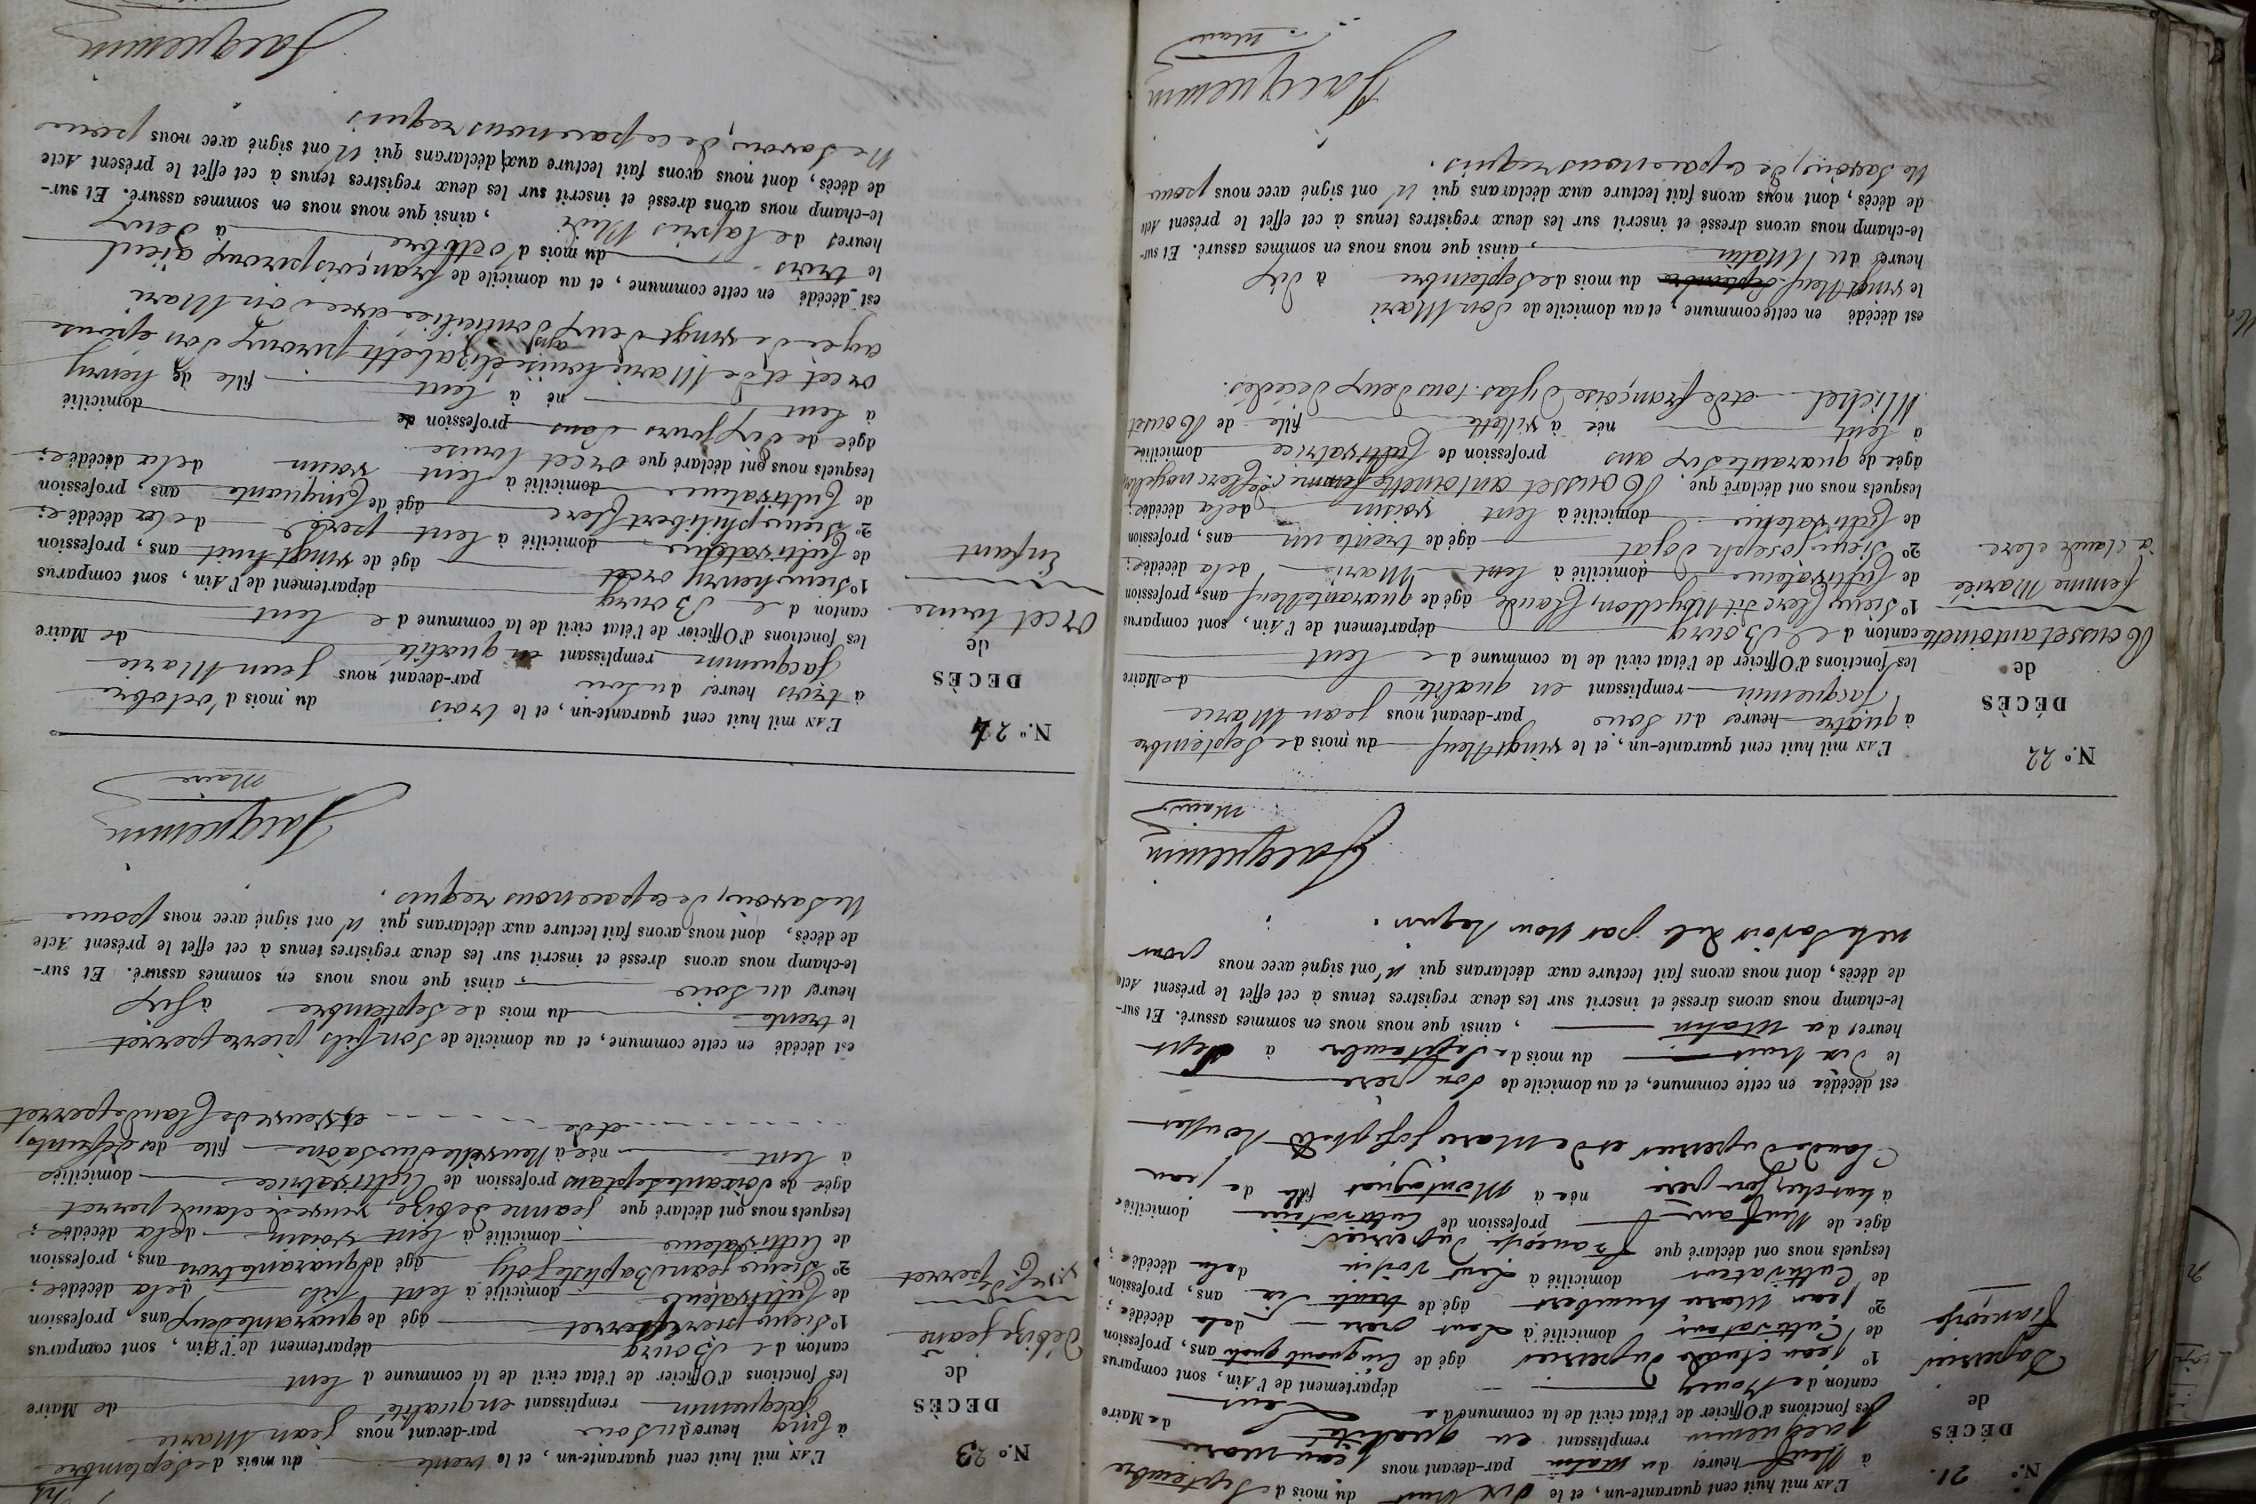 N.° 21.
DÉCÈS
de
Duperier
François
L'AN mil huit cent quarante-un, et le dix huit du mois de Septembre
à neuf heures du matin par-devant nous jean marie
jacquemin remplissant en qualité de Maire
les fonctions d'Officier de l'état civil de la commune de Lent
canton de Bourg département de l'Ain, sont comparus
1° jean claude Duperier âgé de Cinquante ans, profession
de Cultivateur domicilié à Lent père de la décédée;
2° jean Marie humbert âgé de trente six ans, profession
de Cultivateur domicilié à Lent voisin de la décédée;
lesquels nous ont déclaré que Françoise Duperier
âgée de Neuf ans profession de Cultivatrice domiciliée
à Lent chez son père née à Montagnat fille de jean
Claude Duperier et de Marie
est décédée en cette commune, et au domicile de Son père
le dix huit du mois de Septembre à Sept
heures du Matin, ainsi que nous nous en sommes assuré. Et sur-
le-champ nous avons dressé et inscrit sur les deux registres tenus à cet effet le présent Acte
de décès, dont nous avons fait lecture aux déclarans qui n'ont signé avec nous pour
ne le Savoir de ce par Nous Requis.
Jacquemin
Maire
N.° 22
DÉCÈS
de
Rousset antoinette
femme Mariée
à claude clerc.
L'AN mil huit cent quarante-un, et le vingt Neuf du mois de Septembre
à quatre heures du Soir par-devant nous jean Marie
Jacquemin remplissant en qualité de Maire
les fonctions d'Officier de l'état civil de la commune de Lent
canton de Bourg département de l'Ain, sont comparus
1° Sieur Clerc dit Noyellon, Claude âgé de quarante Neuf ans, profession
de Cultivateur domicilié à Lent Mari de la décédée;
2° Sieur Joseph Dojat âgé de trente un ans, profession
de Cultivateur domicilié à Lent voisin de la décédée;
lesquels nous ont déclaré que Rousset antoinette femme Clerc noyellon
âgée de quarante Six ans profession de Cultivatrice domiciliée
à Lent née à villette fille de Rouset
Michel et de françoise Dylas. tous deux décédés.
est décédé en cette commune, et au domicile de Son Mari
le vingt Neuf Septembre du mois de Septembre à Dix
heures du Matin, ainsi que nous nous en sommes assuré. Et sur-
le-champ nous avons dressé et inscrit sur les deux registres tenus à cet effet le présent Acte
de décès, dont nous avons fait lecture aux déclarans qui n'ont signé avec nous pour
Ne Savoir, de ce par nous requis.
Jacquemin
Maire
N.° 23
DÉCÈS
de
Débize jeanne
v.ve C.de perret
L'AN mil huit cent quarante-un, et le trente du mois de Septembre
à Cinq heures du Soir par-devant nous jean Marie
Jacquemin remplissant en qualité de Maire
les fonctions d'Officier de l'état civil de la commune d Lent
canton de Bourg département de l'Ain, sont comparus
1° Sieur pierre perret âgé de quarante deux ans, profession
de Cultivateur domicilié à Lent fils de la décédée;
2° Sieur jean Baptiste Joly âgé de quarante trois ans, profession
de Cultivateur domicilié à Lent voisin de la décédée;
lesquels nous ont déclaré que jeanne debize, veuve de claude perret
âgée de Soixante Sept ans profession de Cultivatrice domiciliée
à Lent née à Neuville sur Saône fille des défunts,
et de et veuve de Claude perret
est décédé en cette commune, et au domicile de Son fils pierre perret
le trente du mois de Septembre à Six
heures du Soir, ainsi que nous nous en sommes assuré. Et sur-
le-champ nous avons dressé et inscrit sur les deux registres tenus à cet effet le présent Acte
de décès, dont nous avons fait lecture aux déclarans qui n'ont signé avec nous pour
Ne Savoir, de ce par nous requis.
Jacquemin
Maire
N.° 24
DÉCÈS
de
Orcet Louise
Enfant
L'AN mil huit cent quarante-un, et le trois du mois d'octobre
à trois heures du Soir par-devant nous Jean Marie
Jacquemin remplissant en qualité de Maire
les fonctions d'Officier de l'état civil de la commune de Lent
canton de Bourg département de l'Ain, sont comparus
1° Sieur henry orcet âgé de vingt huit ans, profession
de Cultivateur domicilié à Lent père de la décédée;
2° Sieur philibert Clerc âgé de Cinquante ans, profession
de Cultivateur domicilié à Lent voisin de la décédée;
lesquels nous ont déclaré que Orcet Louise
âgée de dix jours Sans profession de domicilié
à Lent né à Lent fille de henry
orcet et de Marie Louise élizabeth piroux son épouse
agée de vingt deux ans domiciliée avec Son Mari
est décédé en cette commune, et au domicile de françois piroux ayeul
le trois du mois d'octobre à deux
heures de l'après Midi, ainsi que nous nous en sommes assuré. Et sur-
le-champ nous avons dressé et inscrit sur les deux registres tenus à cet effet le présent Acte
de décès, dont nous avons fait lecture aux déclarans qui n'ont signé avec nous pour
Ne Savoir, de ce par nous requis
Jacquemin